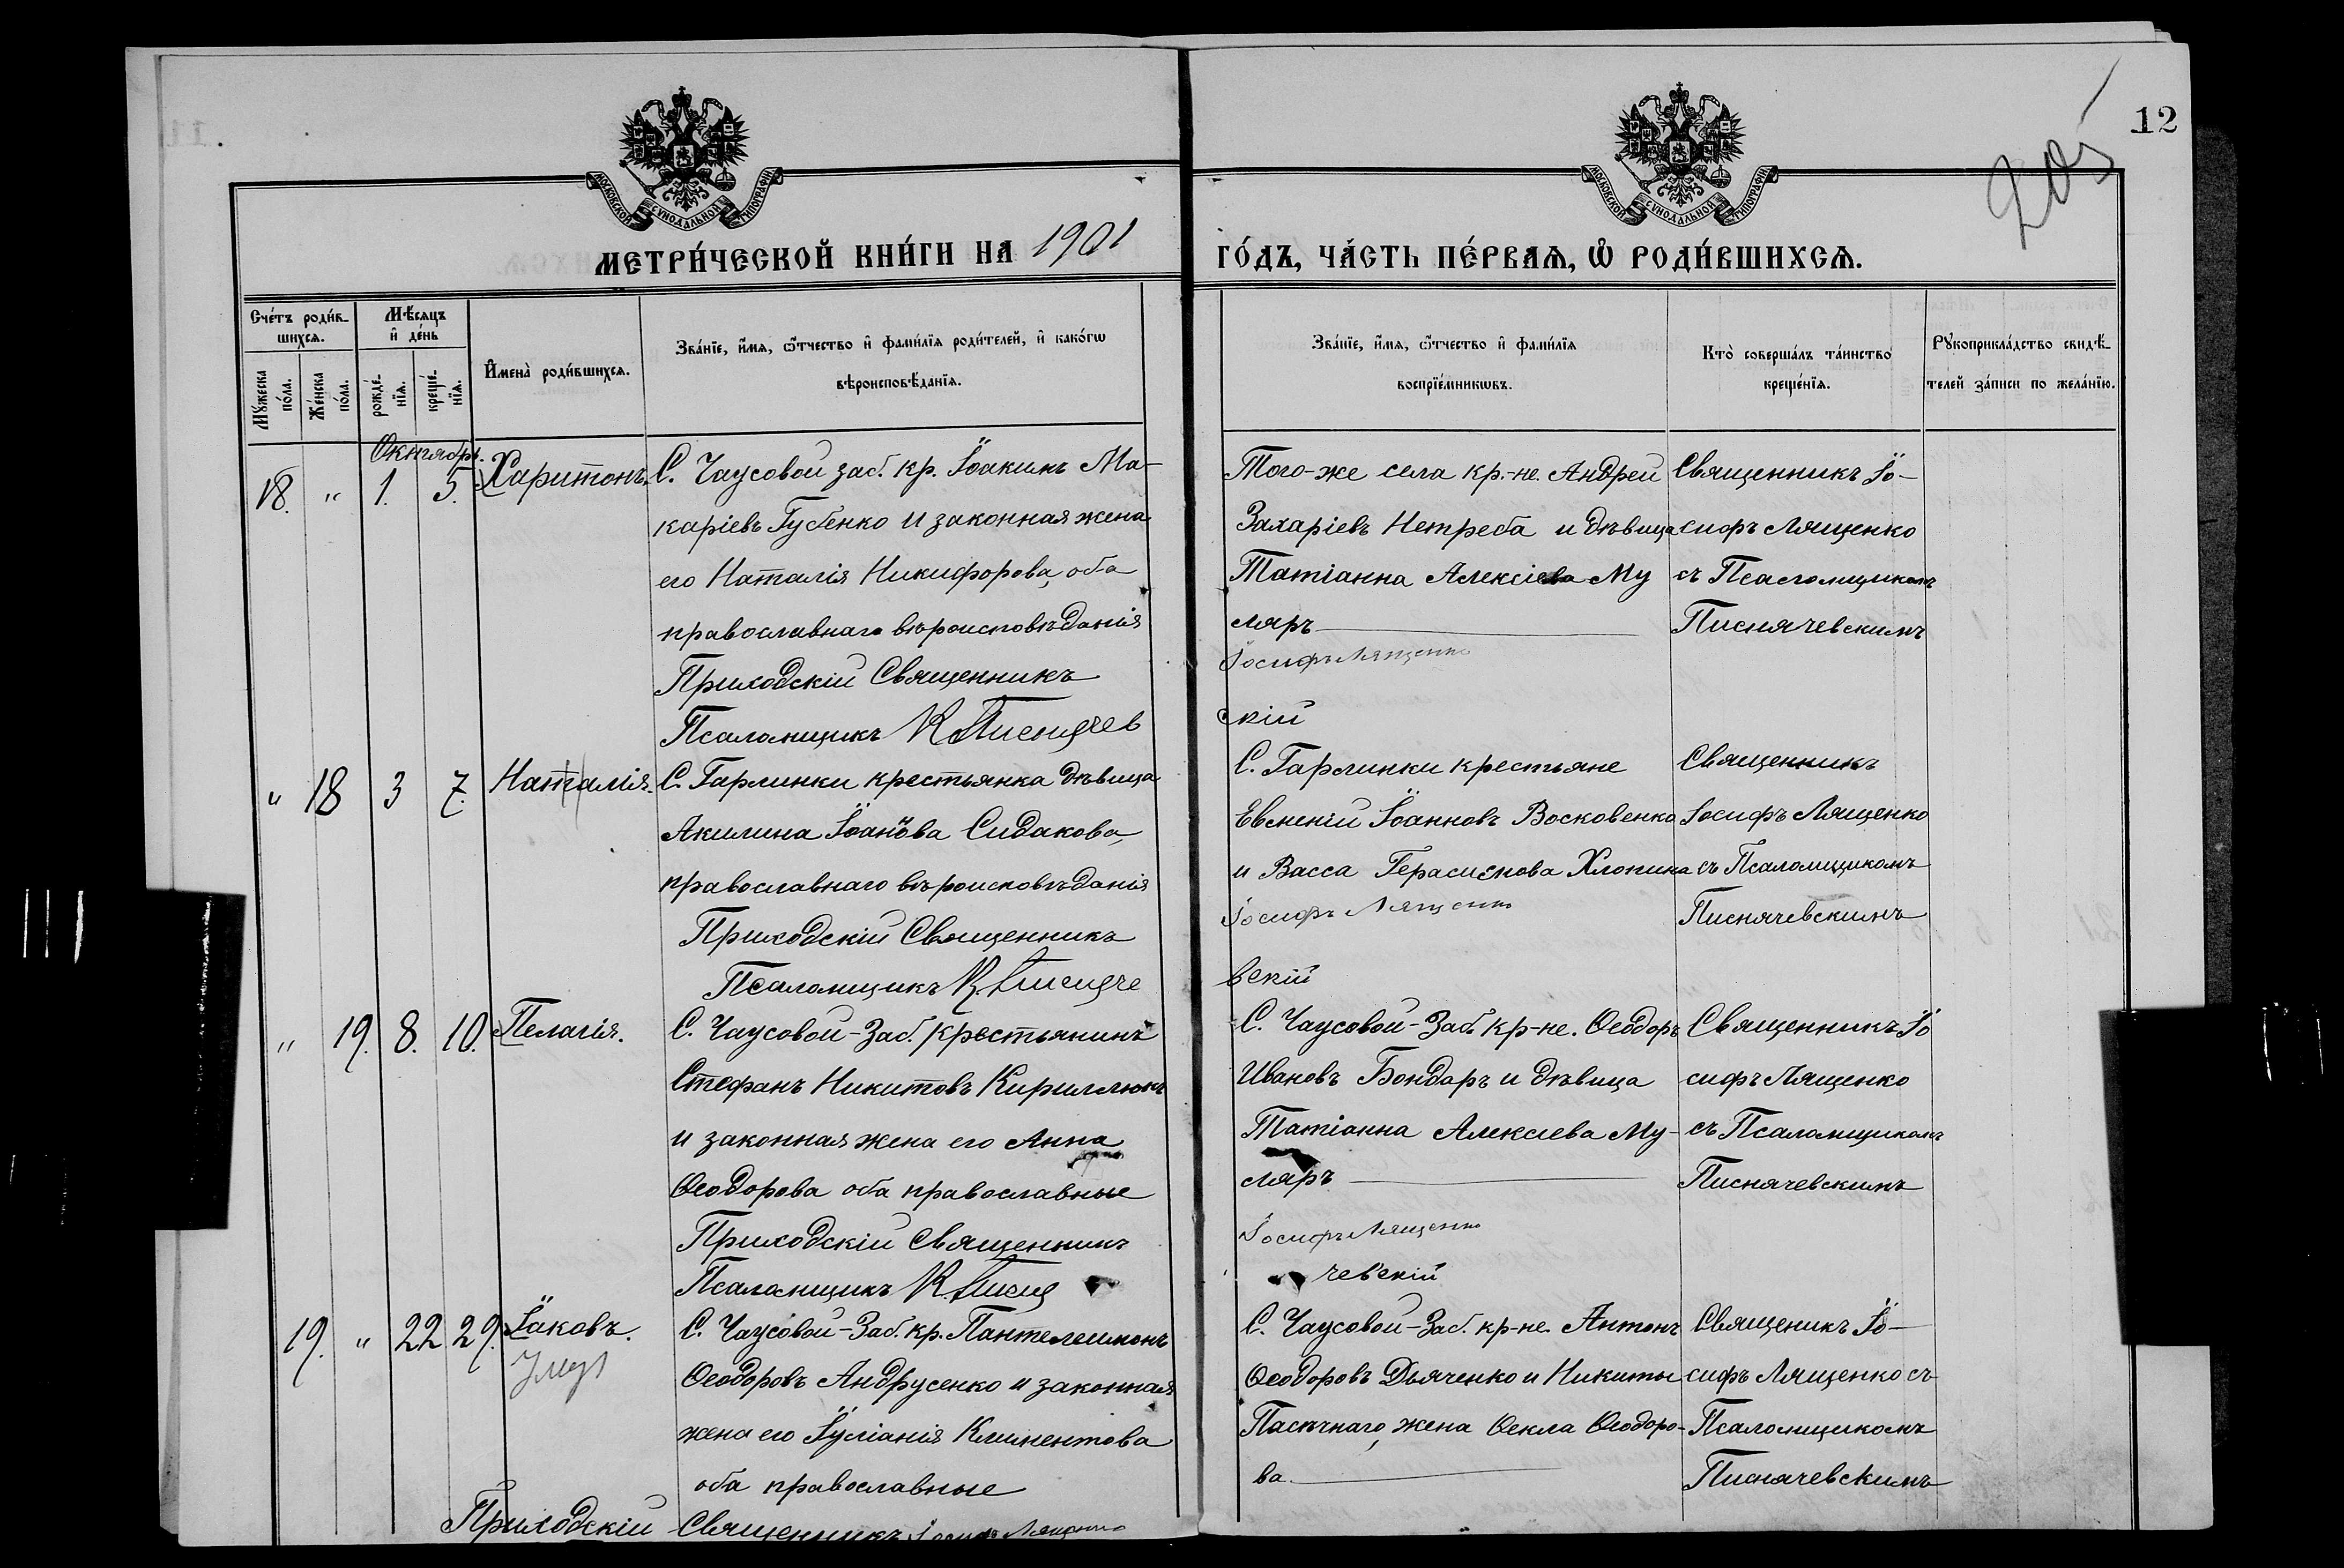 12
205
МОСКОВСКОЙ СѴНОДАЛЬНОЙ ТИПОГРАФІИ
МОСКОВСКОЙ СѴНОДАЛЬНОЙ ТИПОГРАФІИ
МЕТРИ́ЧЕСКОЙ КНИ́ГИ НА 1901
ГО́ДЪ, ЧА́СТЬ ПЕ́РВАѦ, Ѡ҆ РОДИ́ВШИХСѦ.
Сче́тъ роди́в-
шихсѧ.
Мꙋ́жеска по́ла.
Же́нска по́ла.
Мѣ́сяцъ
и҆ де́нь
рожде́-
нїѧ.
креще́-
нїѧ.
И҆мена̀ роди́вшихсѧ.
Зва́нїе, и҆́мѧ, ѻ҆́тчество и҆ фами́лїѧ роди́телей, и҆ како́гѡ
вѣроисповѣ́данїѧ.
Зва́нїе, и҆́мѧ, ѻ҆́тчество и҆ фами́лїѧ
воспрїе́мникѡвъ.
Кто̀ соверша́лъ та́инство
креще́нїѧ.
Рꙋкоприкла́дство свидѣ́-
телей за́писи по жела́нїю.
Октябрь.
18. " 1. 5. Харитонъ.
С. Чаусовой заб. кр. Іоакимъ Ма-
каріевъ Губенко и законная жена
его Наталія Никифорова, оба
православнаго вѣроисповѣданія
Приходскій Священникъ
Псаломщикъ К. Писнячев
Того-же села кр.-не. Андрей
Захаріевъ Нетреба и дѣвица
Татіанна Алексіева Му
ляръ
Іосифъ Лященко
скій
Священникъ Іо-
сифъ Лященко
съ Псаломщикомъ
Писнячевскимъ
" 18 3 7. Наталія.
С. Гарлинки крестьянка дѣвица
Акилина Іоанова Сидакова,
православнаго вѣроисповѣданія
Приходскій Священникъ
Псаломщикъ К. Писняче
С. Гарлинки крестьяне
Евсменій Іоанновъ Восковенко
и Васса Герасимова Хлопина
Іосифъ Лященко
вскій
Священникъ
Іосифъ Лященко
съ Псаломщикомъ
Писнячевскимъ
" 19. 8. 10. Пелагія.
С. Чаусовой-Заб. крестьянинъ
Стефанъ Никитовъ Кириллюкъ
и законная жена его Анна
Ѳеодорова оба православные
Приходскій Священникъ
Псаломщикъ К. Писня
С. Чаусовой-Заб. кр-не. Ѳеодоръ
Ивановъ Бондарь и дѣвица
Татіанна Алексіева Му-
ляръ
Іосифъ Лященко
чевскій
Священникъ Іо
сифъ Лященко
съ Псаломщикомъ
Писнячевскимъ
19. " 22 29. Іаковъ.
С. Чаусовой-Заб. кр. Пантелеимонъ
Ѳеодоровъ Андрусенко и законная
жена его Іуліанія Климентова
оба православные
Приходскій Священникъ Іосифъ Лященко
С. Чаусовой-Заб. кр-не. Антонъ
Ѳеодоровъ Дьяченко и Никиты
Пасѣчнаго, жена Ѳекла Ѳеодоро-
ва.
Священикъ Іо-
сифъ Лященко съ
Псаломщикомъ
Писнячевскимъ